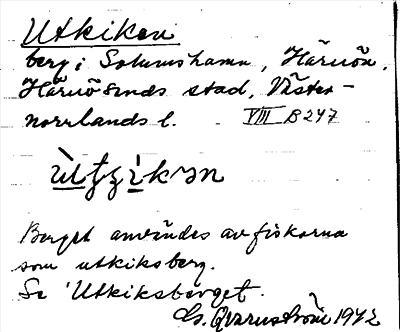 Utkiken
berg i Solumshamn, Härnön,
Härnösands stad, Väster-
norrlands l. VIII B247
Berget användes av fiskarna
som utkiksberg.
Se 'Utkiksberget.
G. Qvarnström 1972